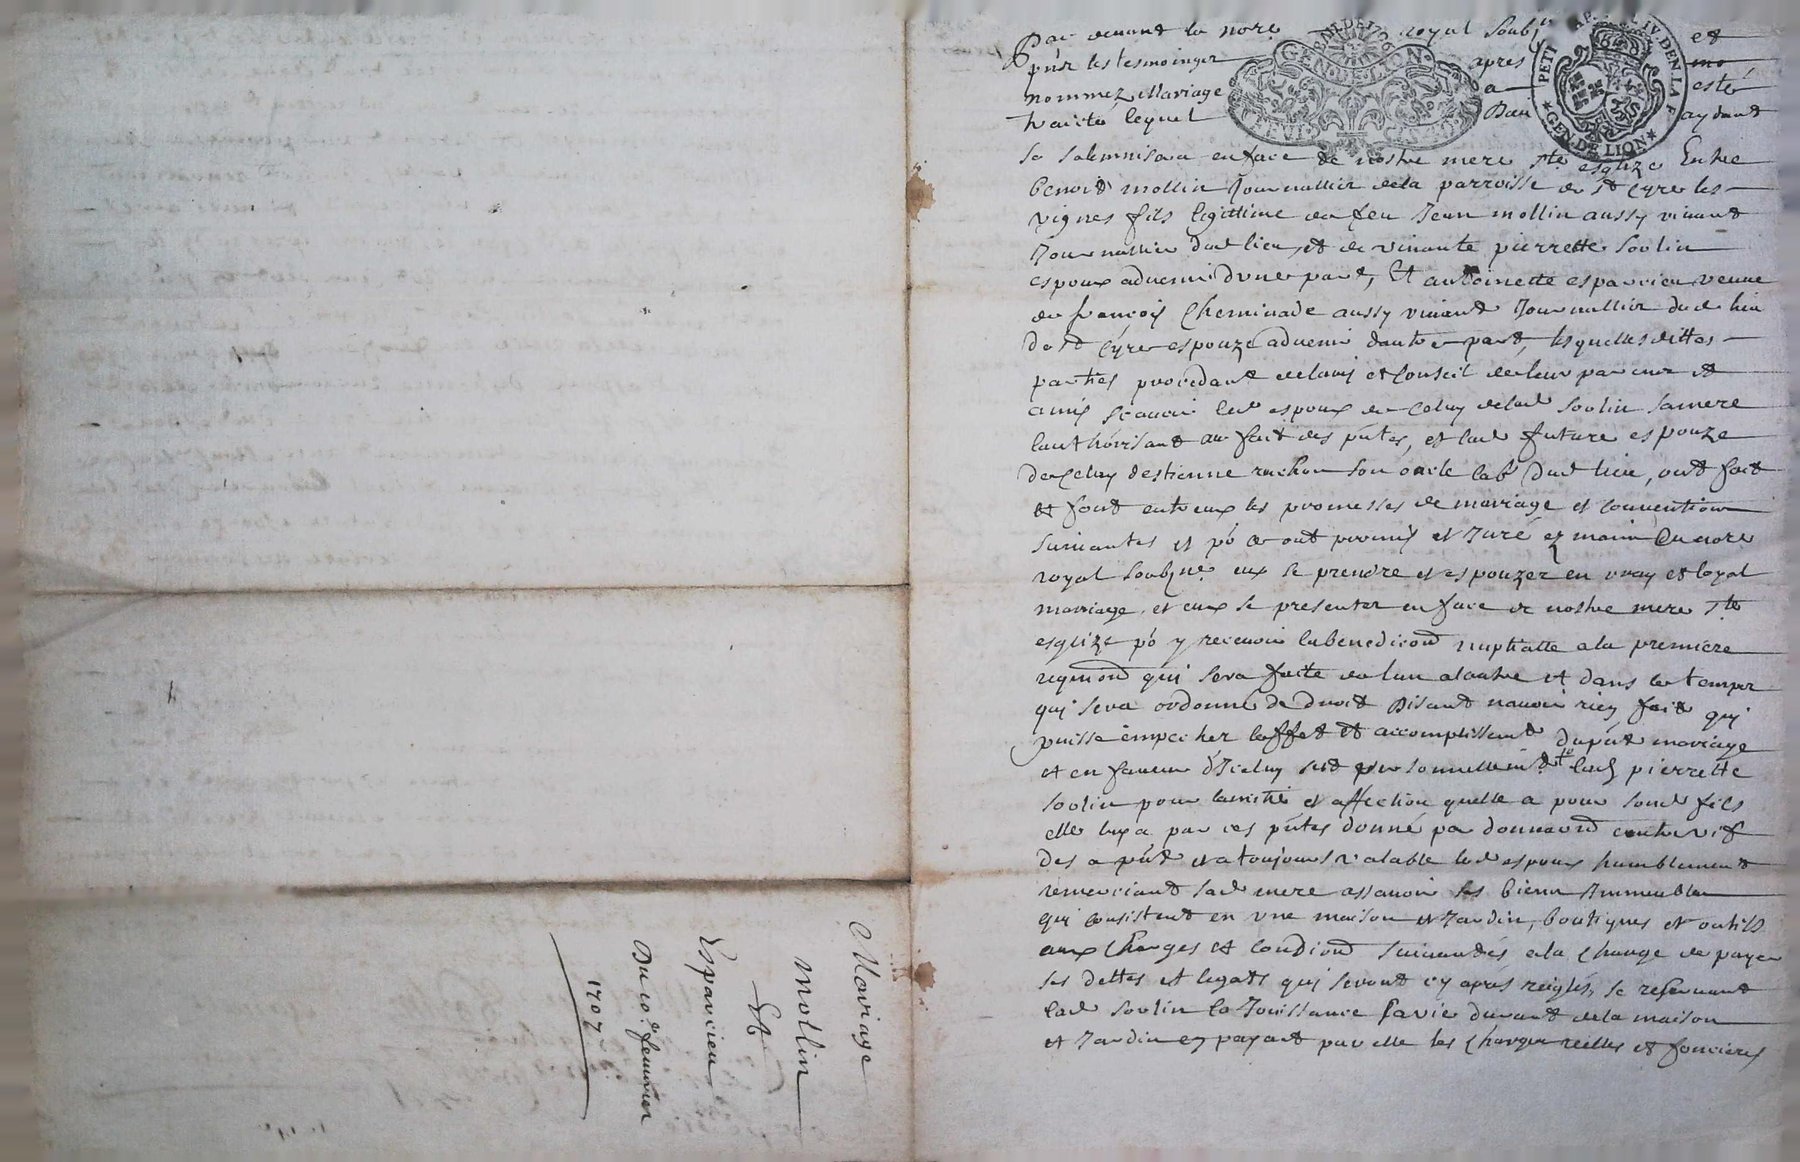 Mariage
Mollin
Et
Esparcieu
Du 10e feuvrier
1707
Par devant le nore royal soubz et
pnts les tesmoingtz apres
nommez Mariage a esté
traicté lequel Dieu aydant
se solemnisera en face de nostre mere ste eglize Entre
benoit mollin Journallier de la parroisse de st Cyre les
vignes fils legittime de feu Jean mollin aussy vivant
Journallier dud lieu, et de vivante pierrette soolin
espoux advenir dune part, Et antoinette esparcieu veuve
de francois Cheminade aussy vivant Journallier dud lieu
de st Cyre espouze advenir dautre part, lesquelles dittes
parties procedant de lavis et conseil de leur parens et
amis scavoir led espoux de celuy de lad soolin sa mere
lauthorisant au fait des pntes, et lad future espouze
de celuy destienne rachon son oncle lab dud lieu, ont fait
et font entreux les promesses de mariage et conventions
suivantes et po ce ont promis et Juré ez mains du nore
royal soubzne eux se prendre et espouzer en vray et loyal
mariage, et eux se presenter en face de nostre mere ste
esglize po y recevoir la benediction nuptialle a la premiere
requion qui sera faite de lun a lautre et dans le temps
qui sera ordonné de droit disant navoir rien fait qui
puisse empecher leffet et accomplissemt du pnt mariage
et en faveur dIceluy personnellemt lad pierrette
soolin pour lamitié et affection quelle a pour sond fils
elle luy a par ces pntes donné par donnaon entre vif
des a pnt et a toujours valable led espoux humblement
remerciant sad mere assavoir ses biens Immeubles
qui consistent en une maison et Jardin, boutiques et outils
aux charges et condions suivantes a la charge de payer
ses dettes et legats qui seront cy apres reiglés, se reservant
lad soolin la Jouissance sa vie durant de la maison
et Jardin en payant par elle les charges reelles et foncieres
GEN. DE LION
PETI PAP. IV. DEN. LA F
GEN. DE LION